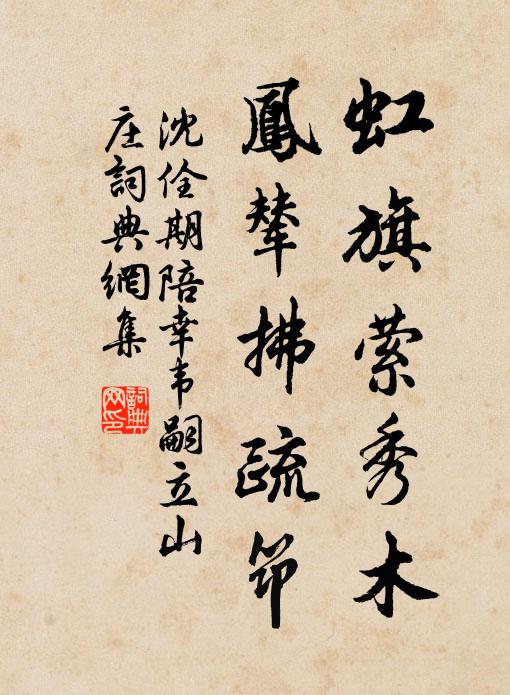 虹旗萦秀木
鳳輦拂疏筇
沈佺期陪幸韦嗣立山
庄詞典網集
詞典
网印